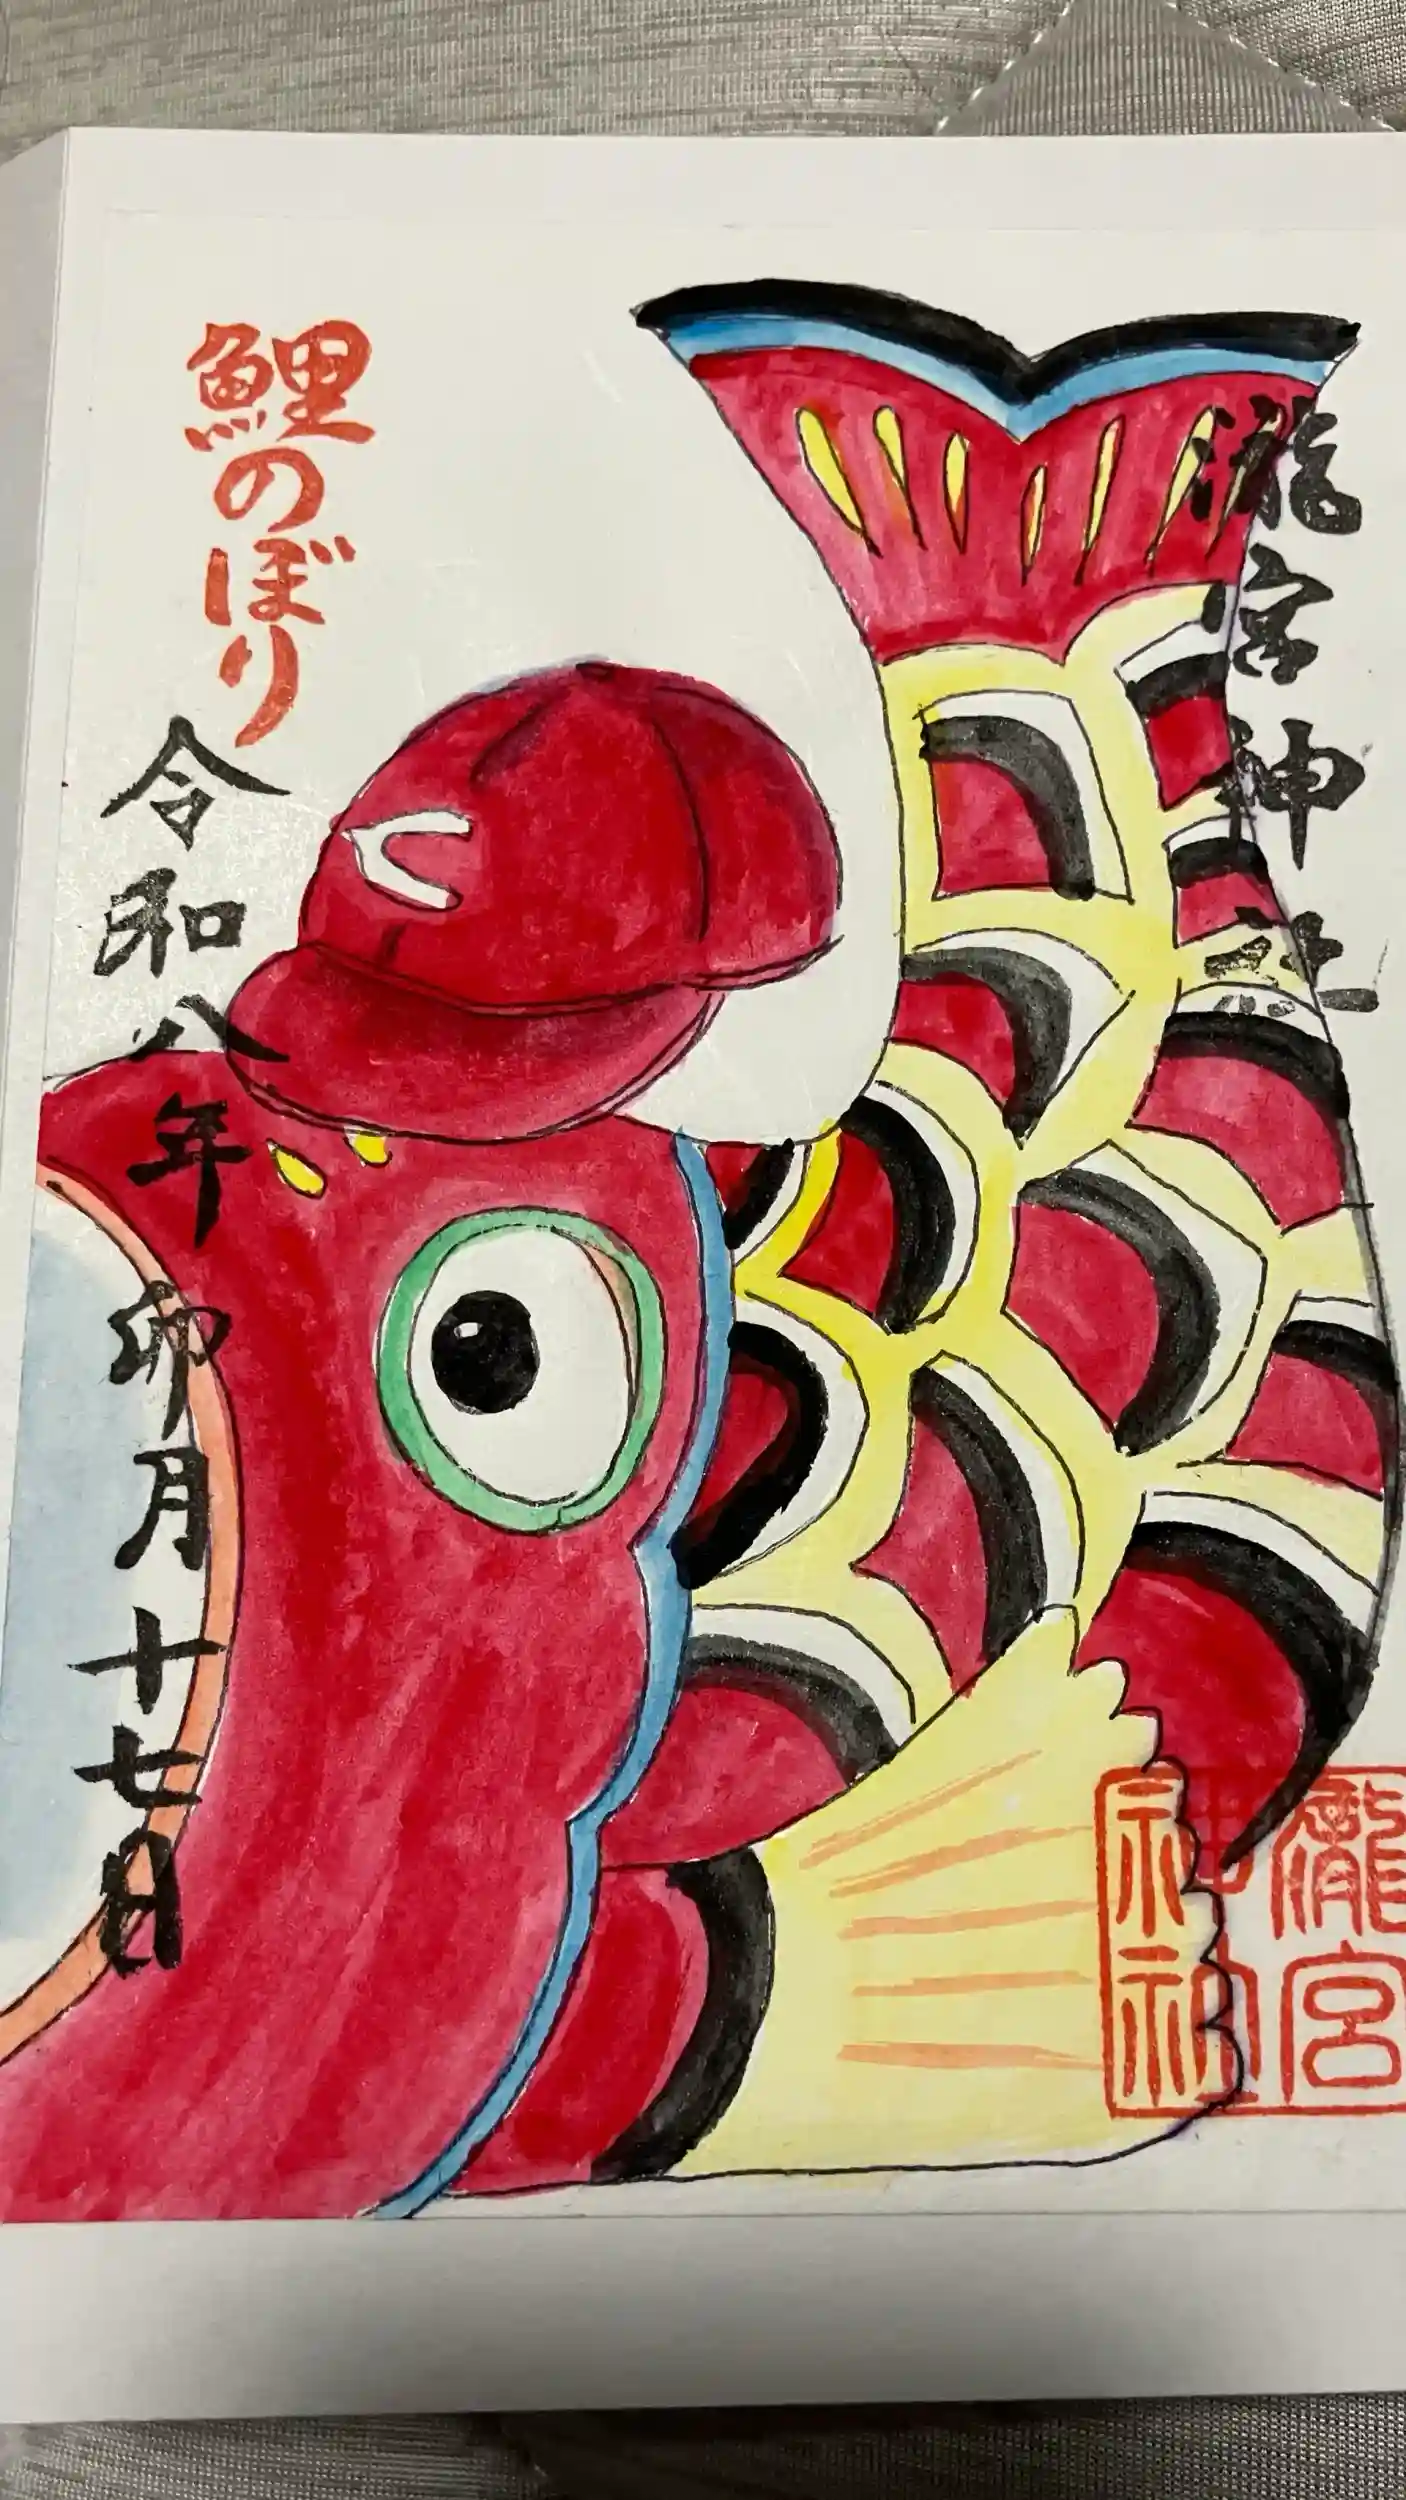 瀧宮神社
鯉のぼり
令和八年卯月十七日
瀧宮
神社